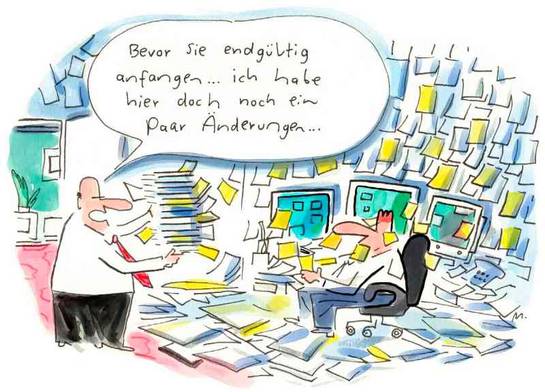 Bevor Sie endgültig
anfangen... ich habe
hier doch noch ein
paar Änderungen...
M.